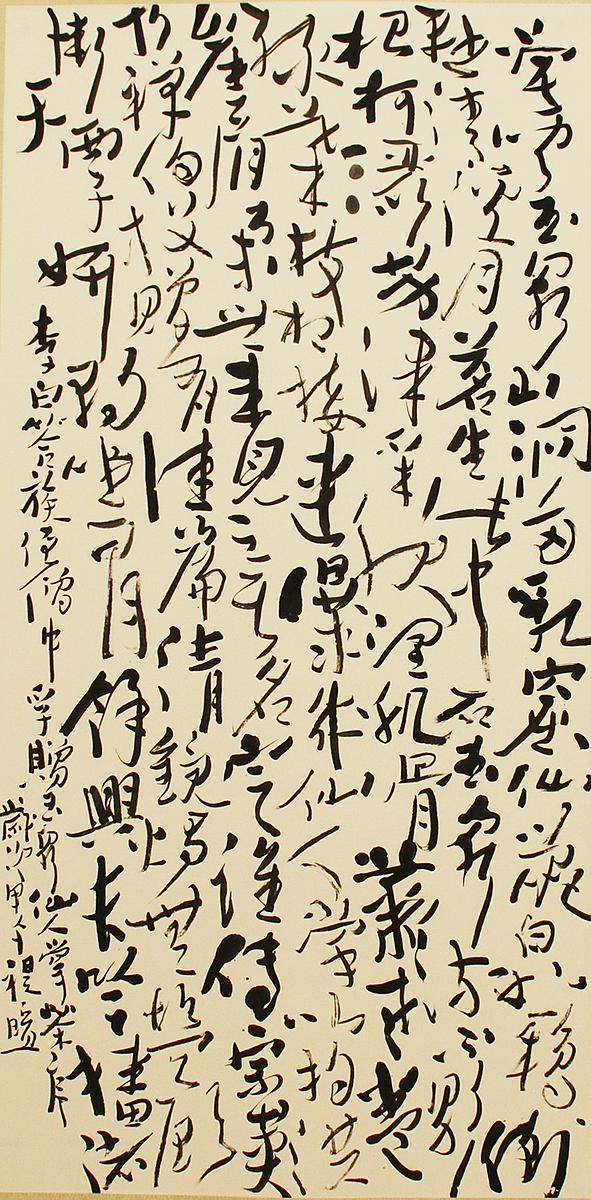 常聞玉泉山洞多乳窟仙鼠白如鴉倒
懸清溪月茗生此中石玉泉流不歇
根柯灑芳津采服潤肌骨叢老卷
綠葉枝枝相接連曝成仙人掌似拍洪
崖肩舉世未見之其名定誰傳宗英
乃禪伯投贈有佳篇清鏡燭無鹽顧
慚西子妍朝坐有餘興長吟播諸
天
李白答族侄僧中孚贈玉泉仙人掌茶
歲次甲午